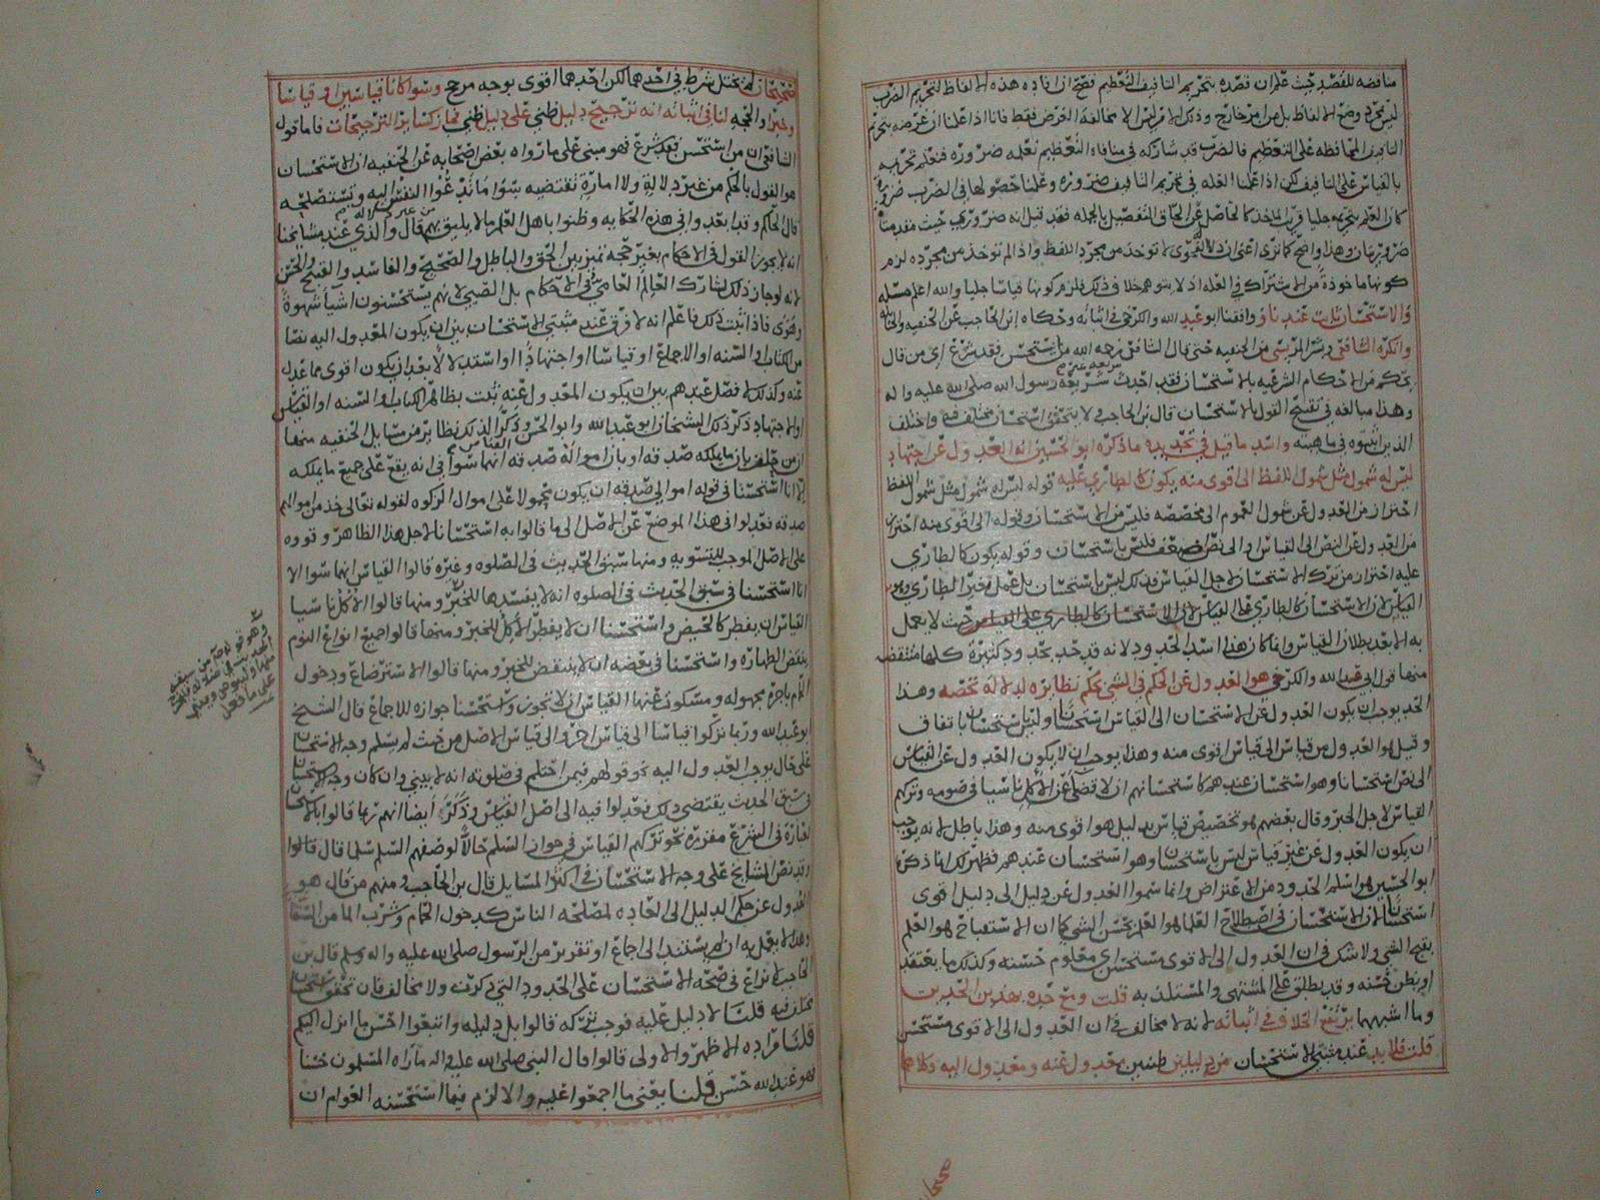 مناقضه للقصد حيث علم ان قصده بتحريم التافيف التعظيم فصح ان افاده هذه الالفاظ لتحريم الضرب
ليس لمجرد وضع الالفاظ بل من امر خارج وذلك الامر ليس الا مخالفة الغرض فقط فانا اذا علمنا ان غرضه بتحريم
التافيف المحافظه على التعظيم فالضرب قد شاركه في منافاة التعظيم نعلمه ضروره فنعلم تحريمه
بالقياس على التافيف لكن اذا علمنا العله في تحريم التافيف ضروره وعلمنا حصولها في الضرب ضرورة
كان العلم بتحريمه جليا قريب الماخذ كالحاصل عن الحاق التفصيل بالجمله فقد قيل انه ضروري حيث مقدمتا
ضروريتان وهذا واضح كما ترى اعني ان دلالة الفحوى لا توخذ من مجرد اللفظ واذا لم توخذ من مجرده لزم
كونها ماخوذة من الاشتراك في العله اذ لا يتوهم خلاف ذلك فلزم كونها قياسا جليا والله اعلم مسله
والاستحسان ثابت عندنا ووافقنا ابو عبد الله والكرخي في اثباته وحكاه ابن الحاجب عن الحنفيه والحنابله
وانكره الشافعي وبشر المريسي من الحنفيه حتى قال الشافعي رحمه الله من استحسن فقد شرع اي من قال
بحكم من الاحكام الشرعيه بالاستحسان فقد احدث شريعة غير شريعة رسول الله صلى الله عليه واله
وهذا مبالغه في تقبيح القول بالاستحسان قال ابن الحاجب ولا يتحقق استحسان مختلف فيه واختلف
الذين اثبتوه في ماهيته واسد ما قيل في تحديده ما ذكره ابو الحسين انه العدول عن اجتهاد
ليس له شمول مثل شمول اللفظ الى اقوى منه يكون كالطاري عليه قوله ليس له شمول مثل شمول اللفظ
احتراز من العدول عن شمول العموم الى مخصصه فليس من الاستحسان وقوله الى اقوى منه احتراز
من العدول عن النص الى القياس او الى نص اضعف فليس باستحسان وقوله يكون كالطاري
عليه احتراز من ترك الاستحسان لاجل القياس فذلك ليس باستحسان بل عمل بغير الطاري
القياس لان الاستحسان كالطاري على القياس حيث لا يعمل
به الا بعد بطلان القياس وانما كان هذا اسد الحدود لانه قد حد بحدود كثيرة كلها منتقض
منها قول ابي عبد الله والكرخي هو العدول عن الحكم في الشي بحكم نظايره لدلالة تخصه وهذا
الحد يوجب ان يكون العدول عن الاستحسان الى القياس استحسانا وليس استحسان باتفاق
وقيل هو العدول من قياس الى قياس اقوى منه وهذا يوجب ان لا يكون العدول عن القياس
الى نص استحسانا وهو استحسان عندهم كاستحسانهم ان لا قضا على الاكل ناسيا في صومه وتركهم
القياس لاجل الخبر وقال بعضهم هو تخصيص قياس بدليل هو اقوى منه وهذا باطل لانه يوجب
ان يكون العدول عن غير قياس ليس باستحسان وهو استحسان عندهم فظهر لك ان ما ذكره
ابو الحسين هو اسلم الحدود من الاعتراض وانما سموا العدول عن دليل الى دليل اقوى
استحسانا لان الاستحسان في اصطلاح العلما هو العلم بحسن الشي كما ان الاستقباح هو العلم
بقبح الشي ولا شك في ان العدول الى الاقوى مستحسن اي معلوم حسنه وكذلك ما يعتقد
او يظن حسنه وقد يطلق على المشتهى والمستلذ به قلت ومع حده بهذين الحدين
وما اشبههما يرتفع الخلاف في اثباته لانه لا مخالف في ان العدول الى الاقوى مستحسن
قلت فلا بد عند مثبتي الاستحسان من دليلين ظنيين معدول عنه ومعدول اليه وكلاهما
صحيحان لم يختل شرط في احدهما لكن احدهما اقوى بوجه مرجح وسوا كانا قياسين او قياسا
وخبرا والحجه لنا في اثباته انه ترجيح دليل ظني على دليل ظني فجاز كساير الترجيحات فاما قول
الشافعي ان من استحسن فقد شرع فهو مبني على ما رواه بعض اصحابه عن الحنفيه ان الاستحسان
هو القول بالحكم من غير دلالة ولا امارة تقتضيه سوا ما تدعوا النفس اليه وتستصلحه
قال الحاكم وقد ابعدوا في هذه الحكايه وظنوا باهل العلم ما لا يليق بهم قال والذي عند مشايخنا
انه لا يجوز القول في الاحكام بغير حجه تميز بين الحق والباطل والصحيح والفاسد والقبيح والحسن
لانه لو جاز ذلك لشارك العالم العامي في الاحكام بل الصبي لانهم يستحسنون اشيا شهوة
وهوى فاذا ثبت ذلك فاعلم انه لا فرق عند مثبتي الاستحسان بين ان يكون المعدول اليه نصا
من الكتاب او السنه او الاجماع او قياسا او اجتهادا او استدلالا بعد ان يكون اقوى مما عدل
عنه وكذلك لا فصل عندهم بين ان يكون المعدول عنه ثبت بظاهر الكتاب او السنه او القياس
او الاجتهاد ذكر ذلك الشيخان ابو عبد الله وابو الحسن وذكر لذلك نظاير من مسايل الحنفيه منها
ان من حلف بان ما يملكه صدقه او بان امواله صدقه القياس انهما سوا في انه يقع على جميع ما يملكه
الا انا استحسنا في قوله اموالي صدقه ان يكون محمولا على اموال الزكوه لقوله تعالى خذ من اموالهم
صدقه فعدلوا في هذا الموضع عن الاصل الى ما قالوا به استحسانا لاجل هذا الظاهر وقووه
على الاصل الموجب للتسويه ومنها سبق الحدث في الصلوه وغيره قالوا القياس انهما سوا الا
انا استحسنا في سبق الحدث في الصلوه انه لا يفسدها للخبر ومنها قالوا الاكل ناسيا
القياس ان يفطر كالحيض واستحسنا ان لا يفطر الاكل للخبر ومنها قالوا جميع انواع النوم
ينقض الطهاره واستحسنا في بعضه ان لا ينقض للخبر ومنها قالوا الاسترضاع ودخول
الحمام باجرة مجهوله ومسكوت عنها القياس ان لا تجوز واستحسنا جوازه للاجماع قال الشيخ
ابو عبد الله وربما تركوا قياسا الى قياس اخر والى قياس الاصل من حيث لم يسلم وجه الاستحسان
على حال يوجب العدول اليه نحو قولهم فيمن احتلم في صلوته انه لا يبني وان كان وجه الاستحسان
في سبق الحدث يقتضي ذلك فعدلوا فيه الى اصل القياس وذكر ايضا انهم ربما قالوا بالاستحسان
لعادة في الشرع مقرره نحو تركهم القياس في جواز السلم حالا لوصفهم السلم سلما قال قالوا
وقد نص المشايخ على وجه الاستحسان في اكثر المسايل قال بن الحاجب ومنهم من قال هو
العدول عن حكم الدليل الى العاده لمصلحه الناس كدخول الحمام وشرب الما من السقا
وهذا لا يعمل به ان لم يستند الى اجماع او تقرير من الرسول صلى الله عليه واله وسلم قال بن
الحاجب لا نزاع في صحة الاستحسان على الحدود التي ذكرت ولا مخالف فان تحقق استحسان
مختلف فيه قلنا لا دليل عليه فوجب تركه قالوا بل دليله واتبعوا احسن ما انزل اليكم
قلنا مراده الاظهر والاولى قالوا قال النبي صلى الله عليه واله ما راه المسلمون حسنا
فهو عند الله حسن قلنا يعني ما اجمعوا عليه والا لزم فيما استحسنه العوام ان